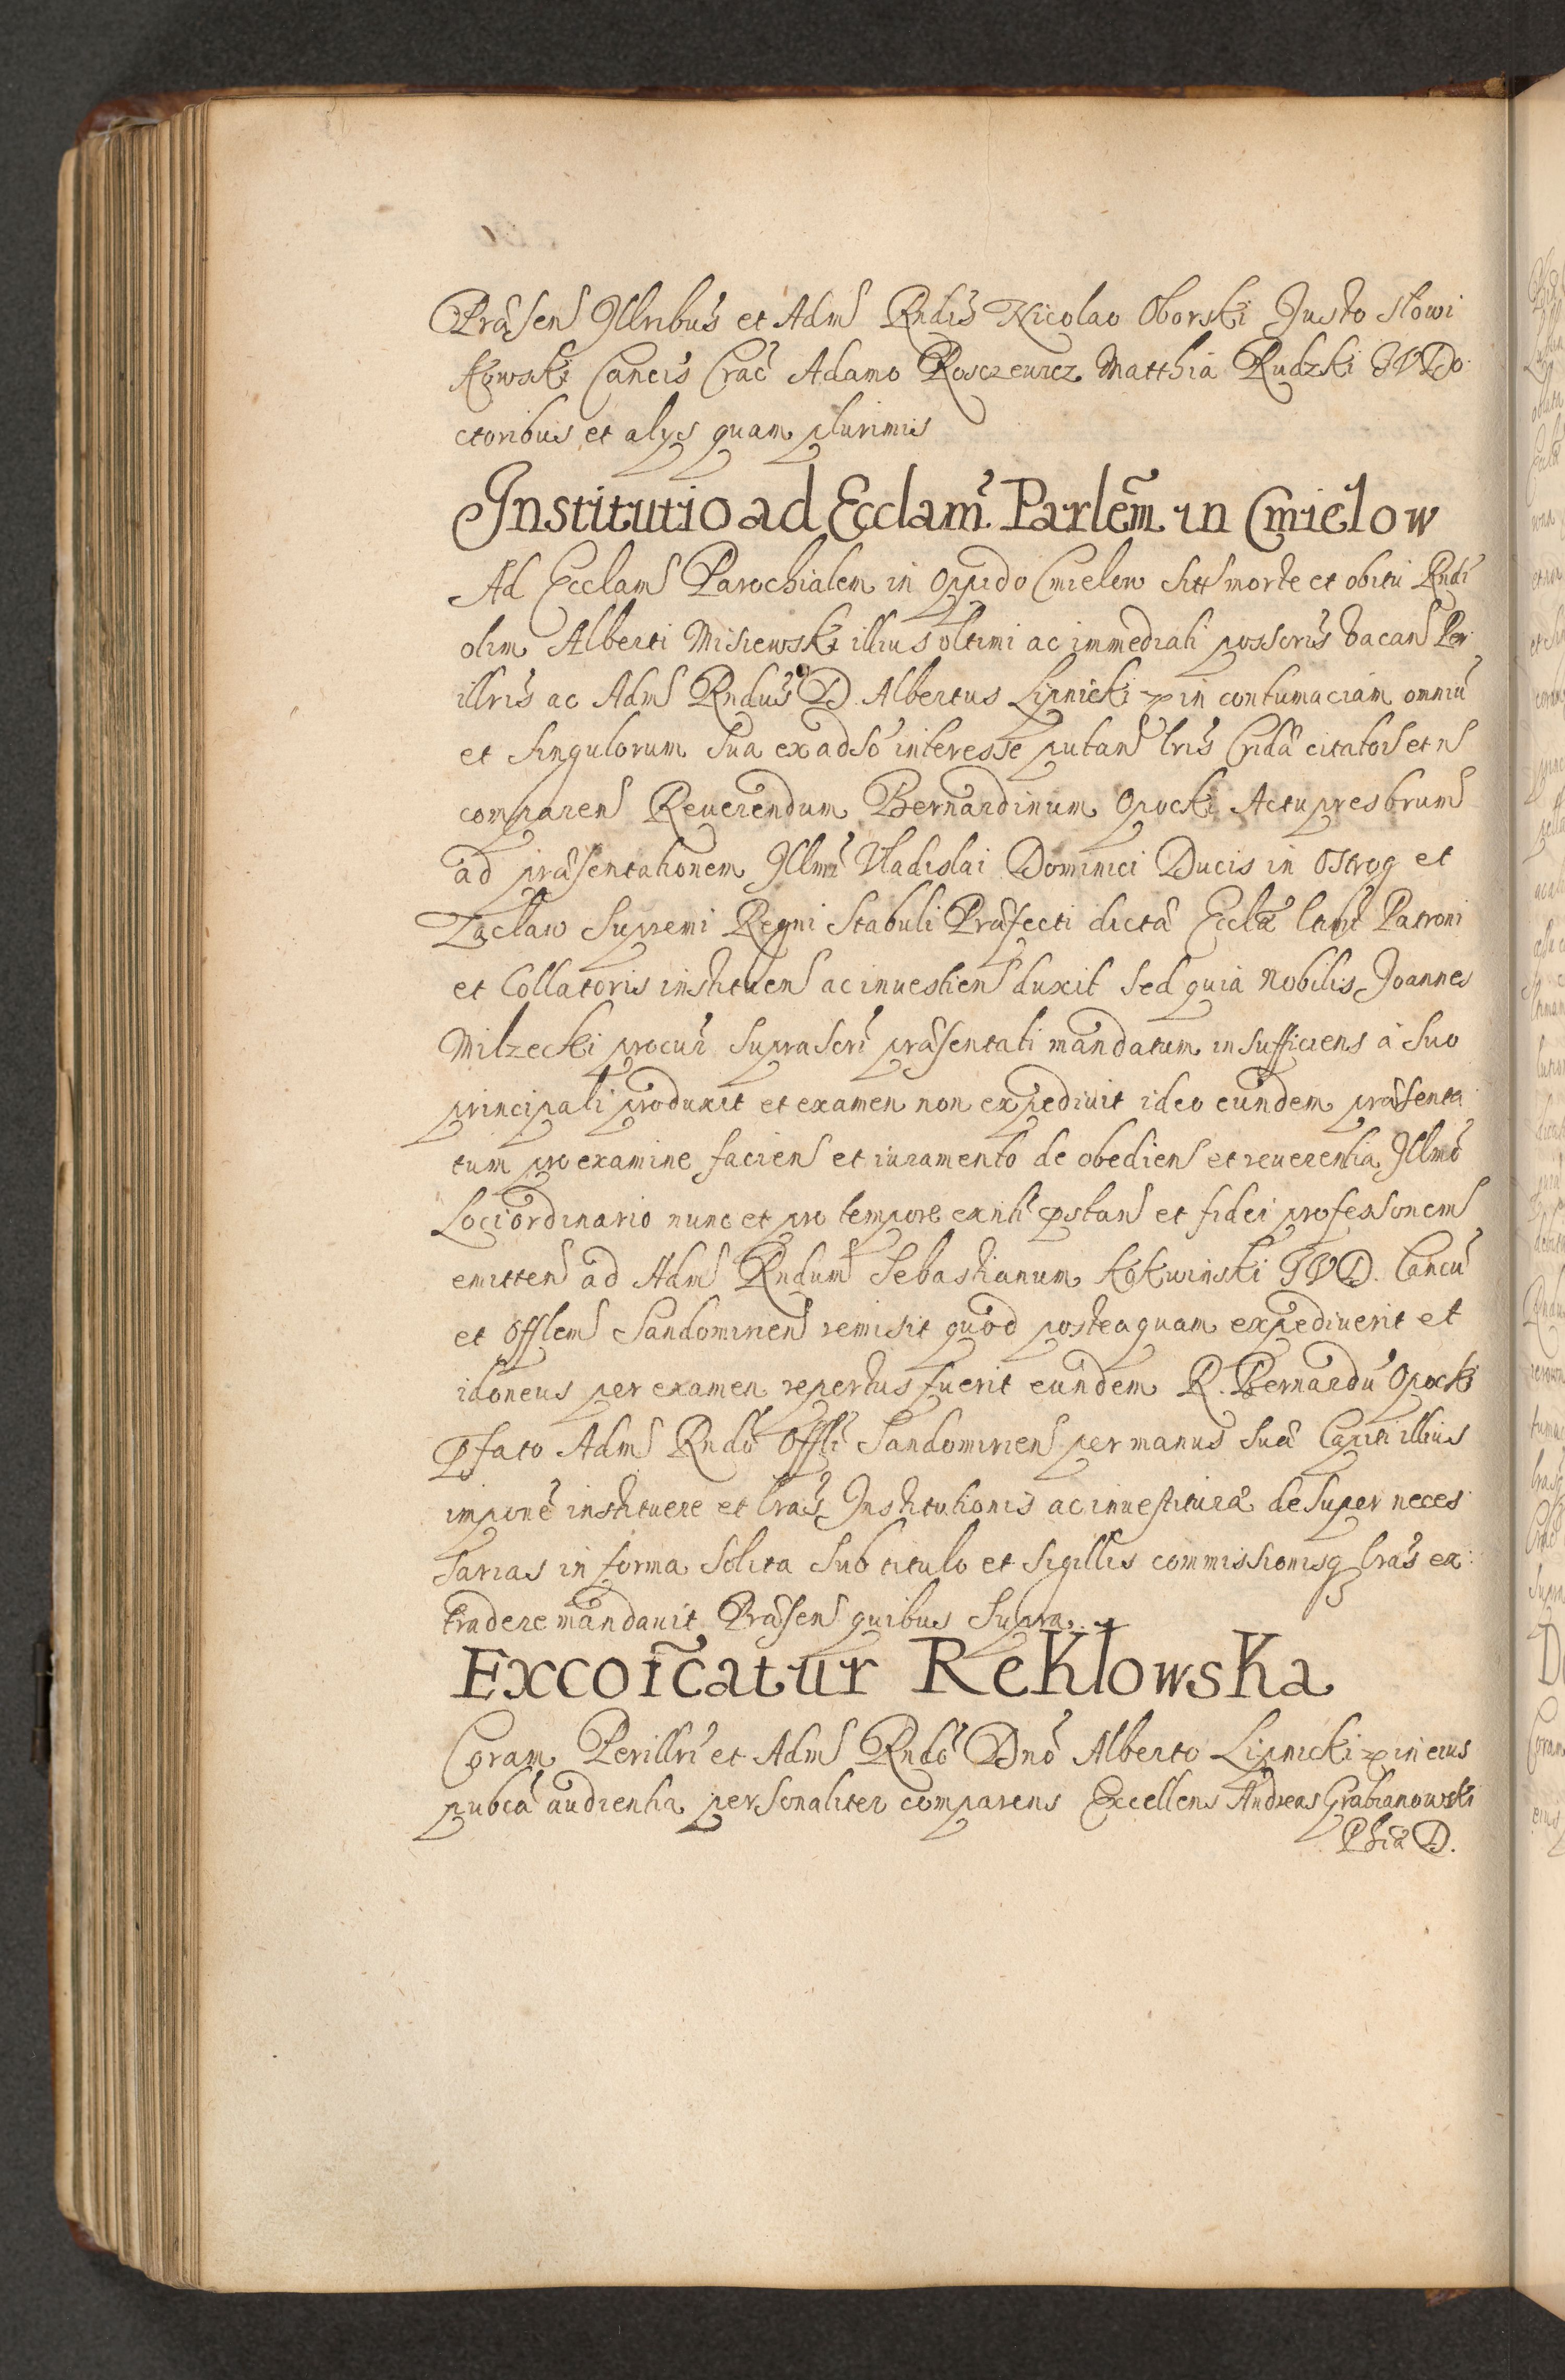 Præsen Jllribus et Adm Rndis Nicolao Oborski Justo Słowi
kowski Cancis Crac Adamo Rosczewicz Matthia Rudzki JVDo
ctoribus et alys quam plurimis
Institutio ad Ecclam Parlem in Cmielow
Ad Ecclam Parochialem in Oppido Cmielow sitt morte et obitu Rndi
olim Alberti Misiewski illius ultimi ac immediati possoris vacan Per
illris ac Adm Rndus D. Albertus Lipnicki in contumaciam omniu
et singulorum sua exadso interesse putan lris Crida citatos et n
comparen Reuerendum Bernardinum Opocki Actu presbrum
ad præsentationem Jllmi Vladislai Dominici Ducis in Ostrog et
Zaclaw Supremi Regni Stabuli Præfecti dictæ Eccla Patroni
et Collatoris instituen ac inuestien duxit Sed quia Nobilis Joannes
Milzecki procur suprascri præsentati mandatum insufficiens a suo
principali produxit et examen non expediuit ideo eundem præsenta
tum pro examine facien et iuramento de obedien et reuerentia Jllmo
Loci ordinario nunc et pro tempore exnti pstan et fidei professionem
emitten ad Adm Rndum Sebastianum Kokwinski JVD. Cancu
et Offlem Sandomirien remisit quod posteaquam expediuerit et
idoneus per examen repertus fuerit eundem R. Bernardu Opocki
Pfato Adm Rndo Offli Sandomirien per manus suæ Capiti illius
impone instituere et lras Institutionis ac inuestituræ desuper neces
sarias in forma solita sub titulo et sigillis commissionisq lras ex
tradere mandauit Præsen quibus supra
Excoicatur Rekłowska
Coram Perillri et Adm Rndo Dno Alberto Lipnicki in eius
pubca audientia personaliter comparens Excellens Andreas Grabianowski
Phiæ D.